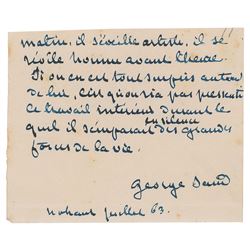 matin, il s'éveille artiste, il se
révèle homme avant
Si on en est tout surpris autour
de lui, c'est qu'on n'a pas pressenti
ce travail intérieur durant le
en silence
quel il s'emparait des grandes
forces de la vie.
George Sand
Nohant juillet 63.